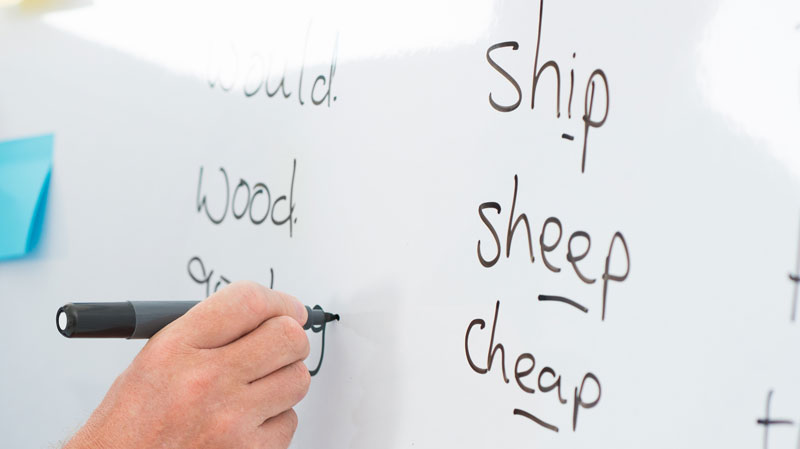 would
wood
ship
sheep
cheap